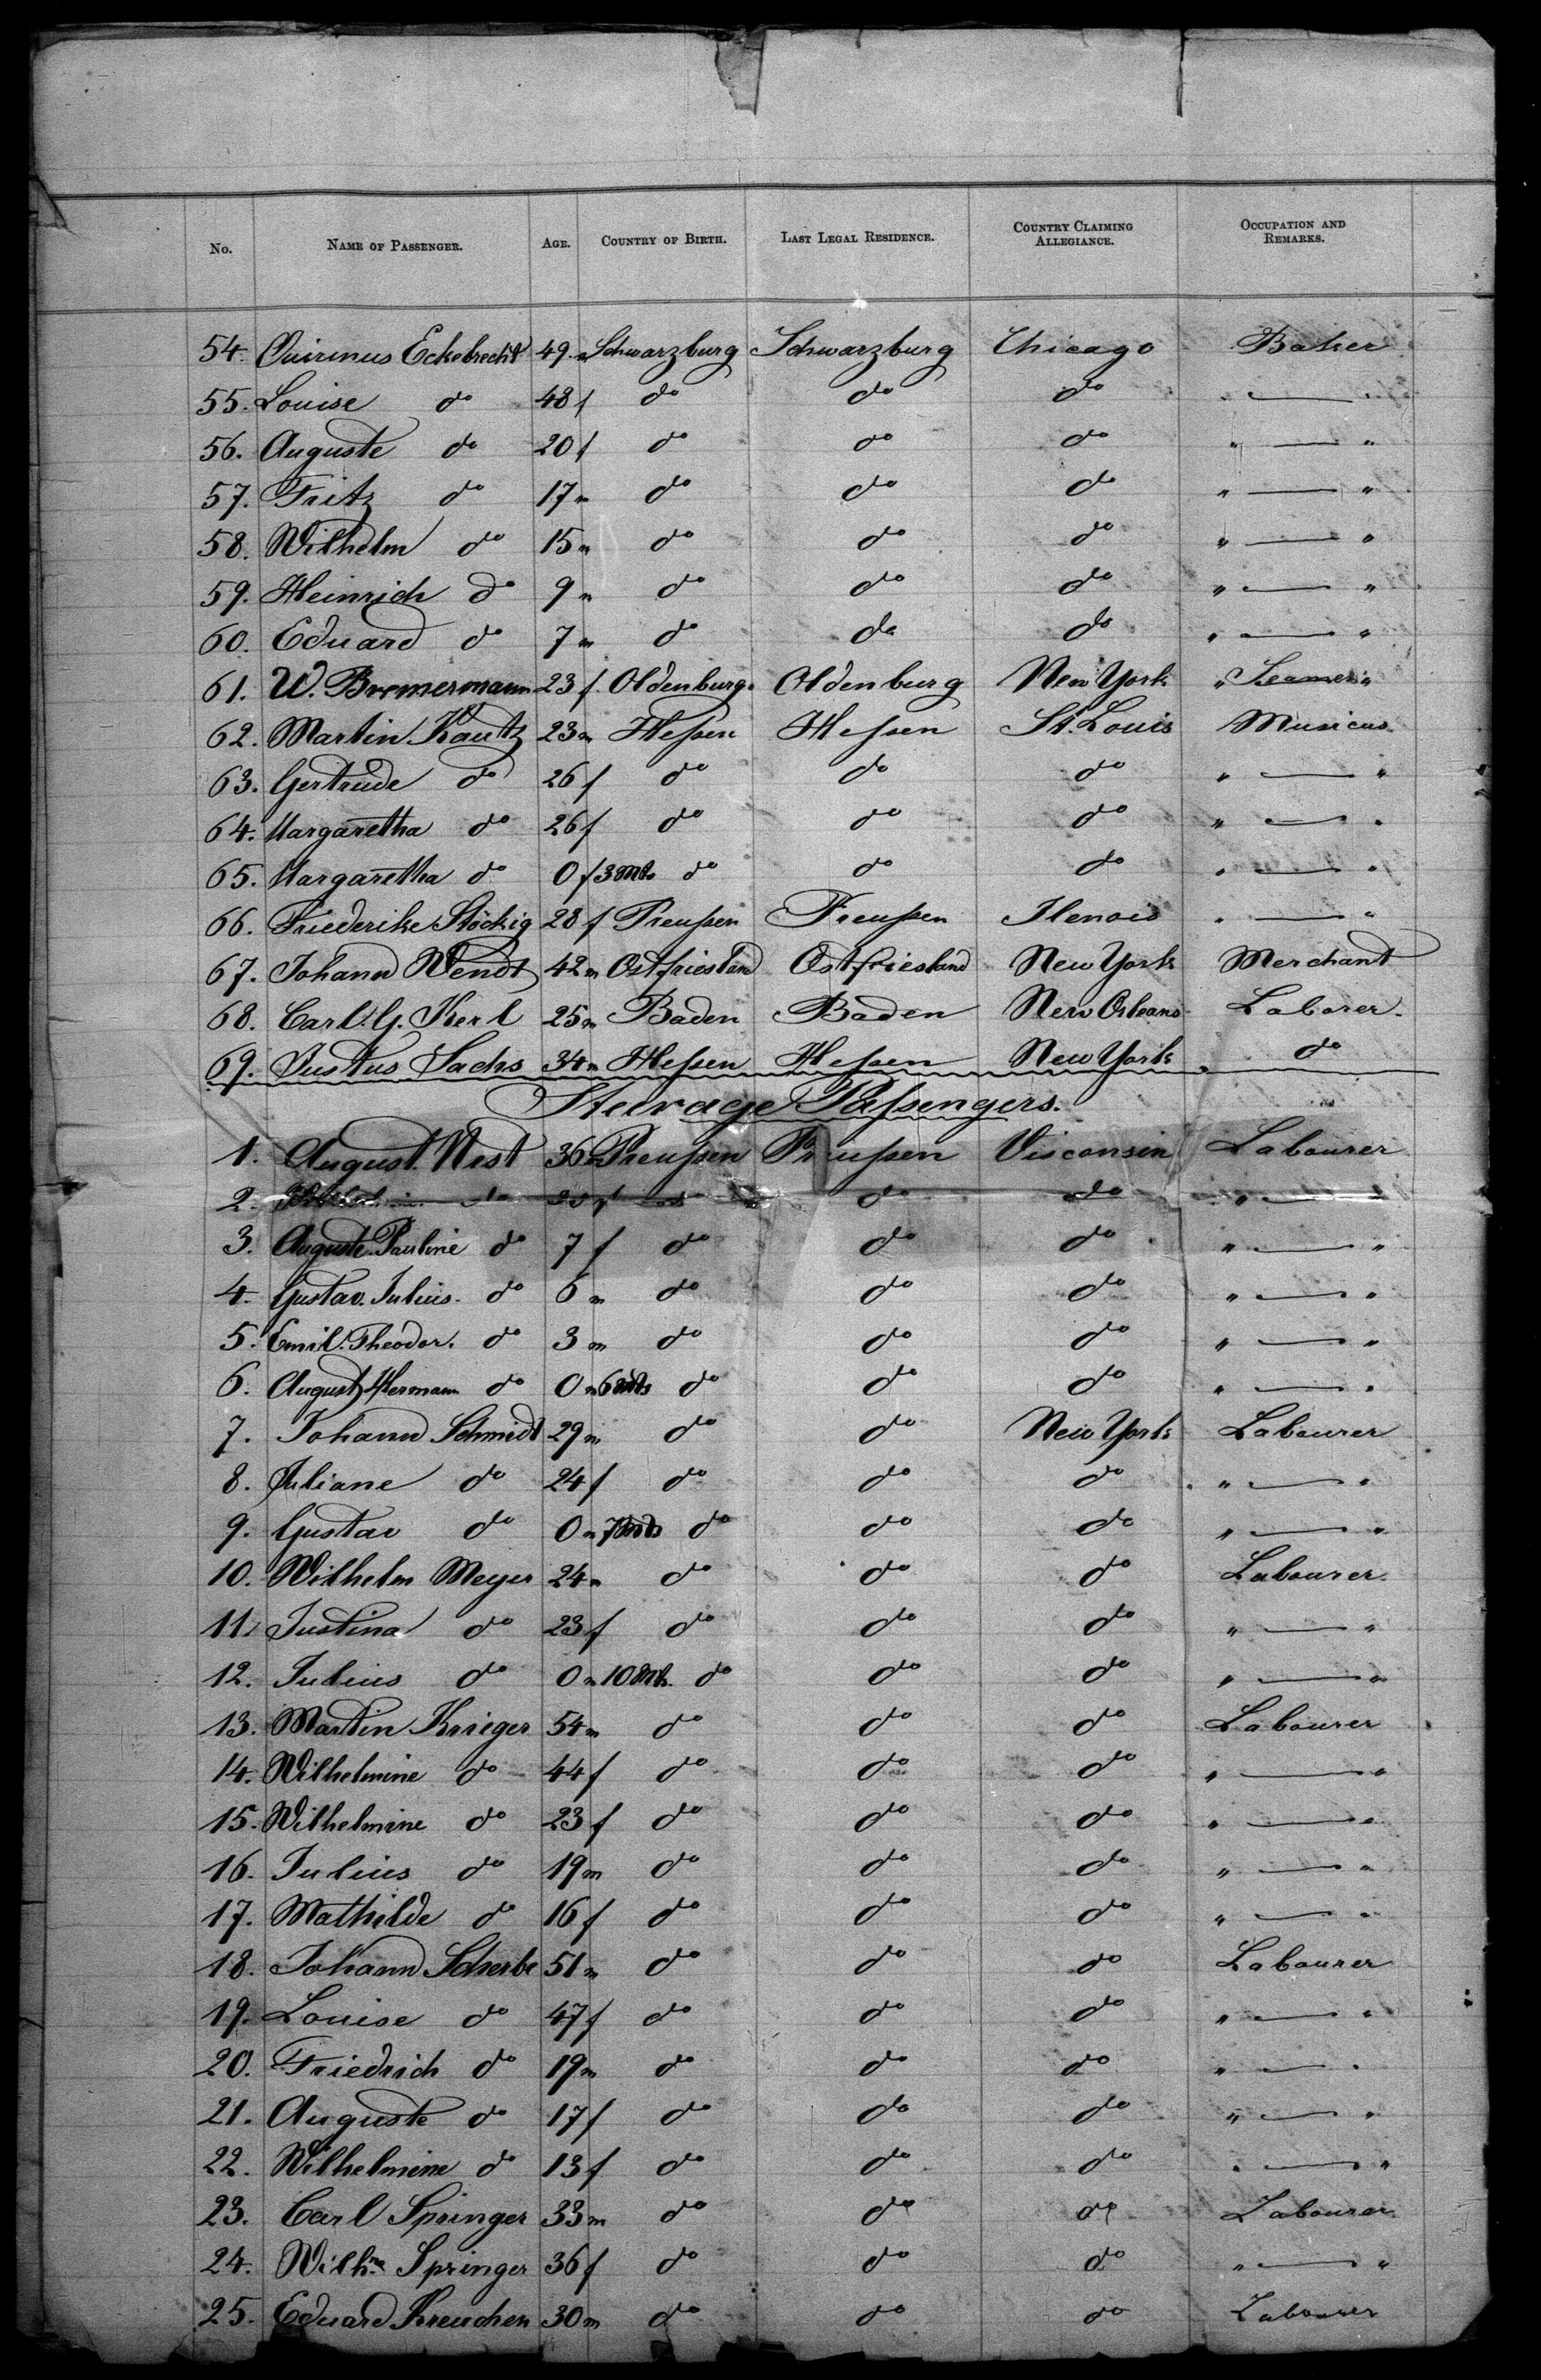 No. NAME OF PASSENGER. AGE. COUNTRY OF BIRTH. LAST LEGAL RESIDENCE. COUNTRY CLAIMING ALLEGIANCE. OCCUPATION AND REMARKS.
54. Quirinus Eckebrecht 49 m Schwarzburg Schwarzburg Chicago Baker
55. Louise do 48 f do do do " "
56. Auguste do 20 f do do do " "
57. Fritz do 17 m do do do " "
58. Wilhelm do 15 m do do do " "
59. Heinrich do 9 m do do do " "
60. Eduard do 7 m do do do " "
61. W. Bremermann 23 f. Oldenburg. Oldenburg New York
62. Martin Kautz 23 m Heſsen Heſsen St. Louis Musicus
63. Gertrude do 26 f do do do " "
64. Margaretha do 26 f do do do " "
65. Margaretha do 0 f 3 Mts do do do " "
66. Friederike Stöckig 28 f Preuſsen Preuſsen Ilenois " "
67. Johann Wendt 42 m Ostfriesland Ostfriesland New York Merchant
68. Carl. G. Kerl 25 m Baden Baden New Orleans Laborer.
69. Justus Sachs 34 m Heſsen Heſsen New York do
Steerage Paſsengers.
1. August Nest 36 m Preuſsen Preuſsen Visconsin Labourer
2. do f do do do "
3. Auguste Pauline do 7 f do do do " "
4. Gustav. Julius. do 6 m do do do " "
5. Emil. Theodor. do 3 m do do do " "
6. August Hermann do 0 m 6 Mts do do do " "
7. Johann Schmidt 29 m do do New York Labourer
8. Juliane do 24 f do do do " "
9. Gustav do 0 m 7 Mts do do do " "
10. Wilhelm Meyer 24 m do do do Labourer
11. Justina do 23 f do do do " "
12. Julius do 0 m 10 Mts. do do do " "
13. Martin Krieger 54 m do do do Labourer
14. Wilhelmine do 44 f do do do " "
15. Wilhelmine do 23 f do do do " "
16. Julius do 19 m do do do " "
17. Mathilde do 16 f do do do " "
18. Johann Scherbe 51 m do do do Labourer
19. Louise do 47 f do do do " "
20. Friedrich do 19 m do do do " "
21. Auguste do 17 f do do do " "
22. Wilhelmine do 13 f do do do " "
23. Carl Springer 33 m do do do Labourer
24. Wilhne Springer 36 f do do do " "
25. Eduard Kreuchen 30 m do do do Labourer